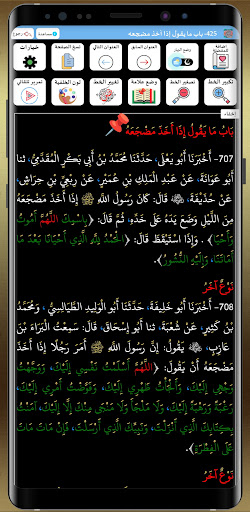 425- باب ما يقول إذا أخذ مضجعه
خيارات
نسخ الصفحة
العنوان التالي
العنوان السابق
وضع النهار
إضافة
تمرير تلقائي
لون الخلفية
تغيير الخط
وضع علامة
تصغير الخط
تكبير الخط
إخفاء
بَابُ مَا يَقُولُ إِذَا أَخَذَ مَضْجَعَهُ
707- أَخْبَرَنَا أَبُو يَعْلَى، حَدَّثَنَا مُحَمَّدُ بْنُ أَبِي بَكْرٍ الْمُقَدَّمِيُّ، ثنا
أَبُو عَوَانَةَ، عَنْ عَبْدِ الْمَلِكِ بْنِ عُمَيْرٍ، عَنْ رِبْعِيِّ بْنِ حِرَاشٍ،
عَنْ حُذَيْفَةَ، قَالَ: كَانَ رَسُولُ اللَّهِ ﷺ إِذَا أَخَذَ مَضْجَعَهُ
مِنَ اللَّيْلِ وَضَعَ يَدَهُ عَلَى خَدِّهِ، ثُمَّ قَالَ: «بِاسْمِكَ اللَّهُمَّ أَمُوتُ
وَأَحْيَا» . وَإِذَا اسْتَيْقَظَ قَالَ: «الْحَمْدُ لِلَّهِ الَّذِي أَحْيَانَا بَعْدَ مَا
أَمَاتَنَا، وَإِلَيْهِ النُّشُورُ»
نَوْعٌ آخَرُ
708- أَخْبَرَنَا أَبُو خَلِيفَةَ، حَدَّثَنَا أَبُو الْوَلِيدِ الطَّيَالِسِيُّ، وَمُحَمَّدُ
بْنُ كَثِيرٍ، عَنْ شُعْبَةَ، ثنا أَبُو إِسْحَاقَ، قَالَ: سَمِعْتُ الْبَرَاءَ بْنَ
عَازِبٍ، يَقُولُ: إِنَّ رَسُولَ اللَّهِ ﷺ أَمَرَ رَجُلًا إِذَا أَخَذَ
مَضْجَعَهُ أَنْ يَقُولَ: «اللَّهُمَّ أَسْلَمْتُ نَفْسِي إِلَيْكَ، وَوَجَّهْتُ
وَجْهِي إِلَيْكَ، وَأَلْجَأْتُ ظَهْرِي إِلَيْكَ، وَفَوَّضْتُ أَمْرِي إِلَيْكَ،
رَغْبَةً وَرَهْبَةً إِلَيْكَ، وَلَا مَلْجَأَ وَلَا مَنْجَى مِنْكَ إِلَّا إِلَيْكَ، آمَنْتُ
بِكِتَابِكَ الَّذِي أَنْزَلْتَ، وَنَبِيِّكَ الَّذِي أَرْسَلْتَ، فَإِنْ مَاتَ مَاتَ
عَلَى الْفِطْرَةِ»
نَوْعٌ آخَرُ